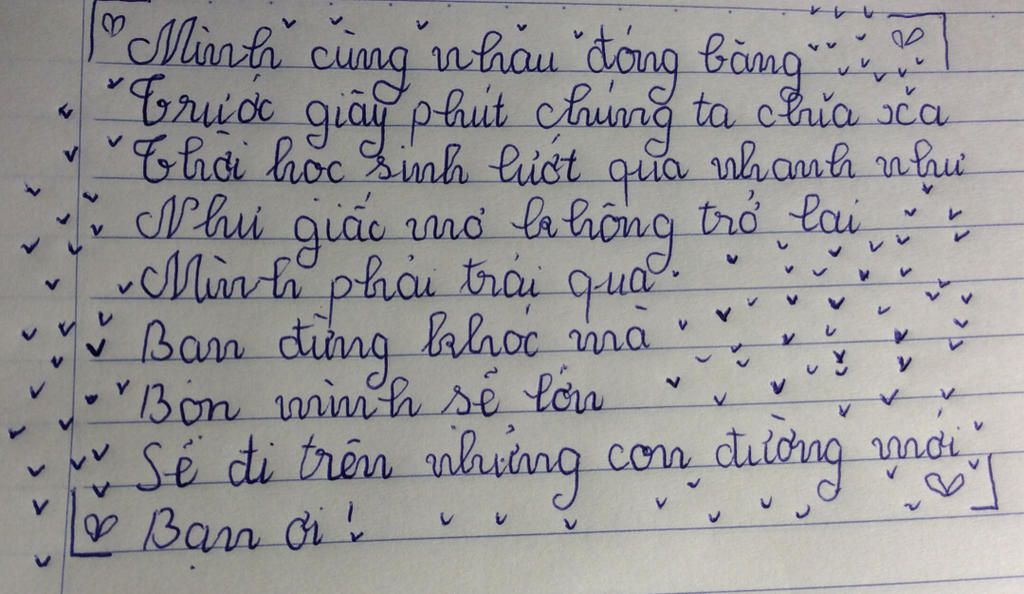 Mình cùng nhâu đóng băng
Trước giây phút chúng ta chia xa
Thời học sinh lướt qua nhanh như
Như giấc mơ không trở lại
Mình phải trải qua
Bạn đừng khóc mà
Bọn mình sẽ lớn
Sẽ đi trên những con đường mới
Bạn ơi!